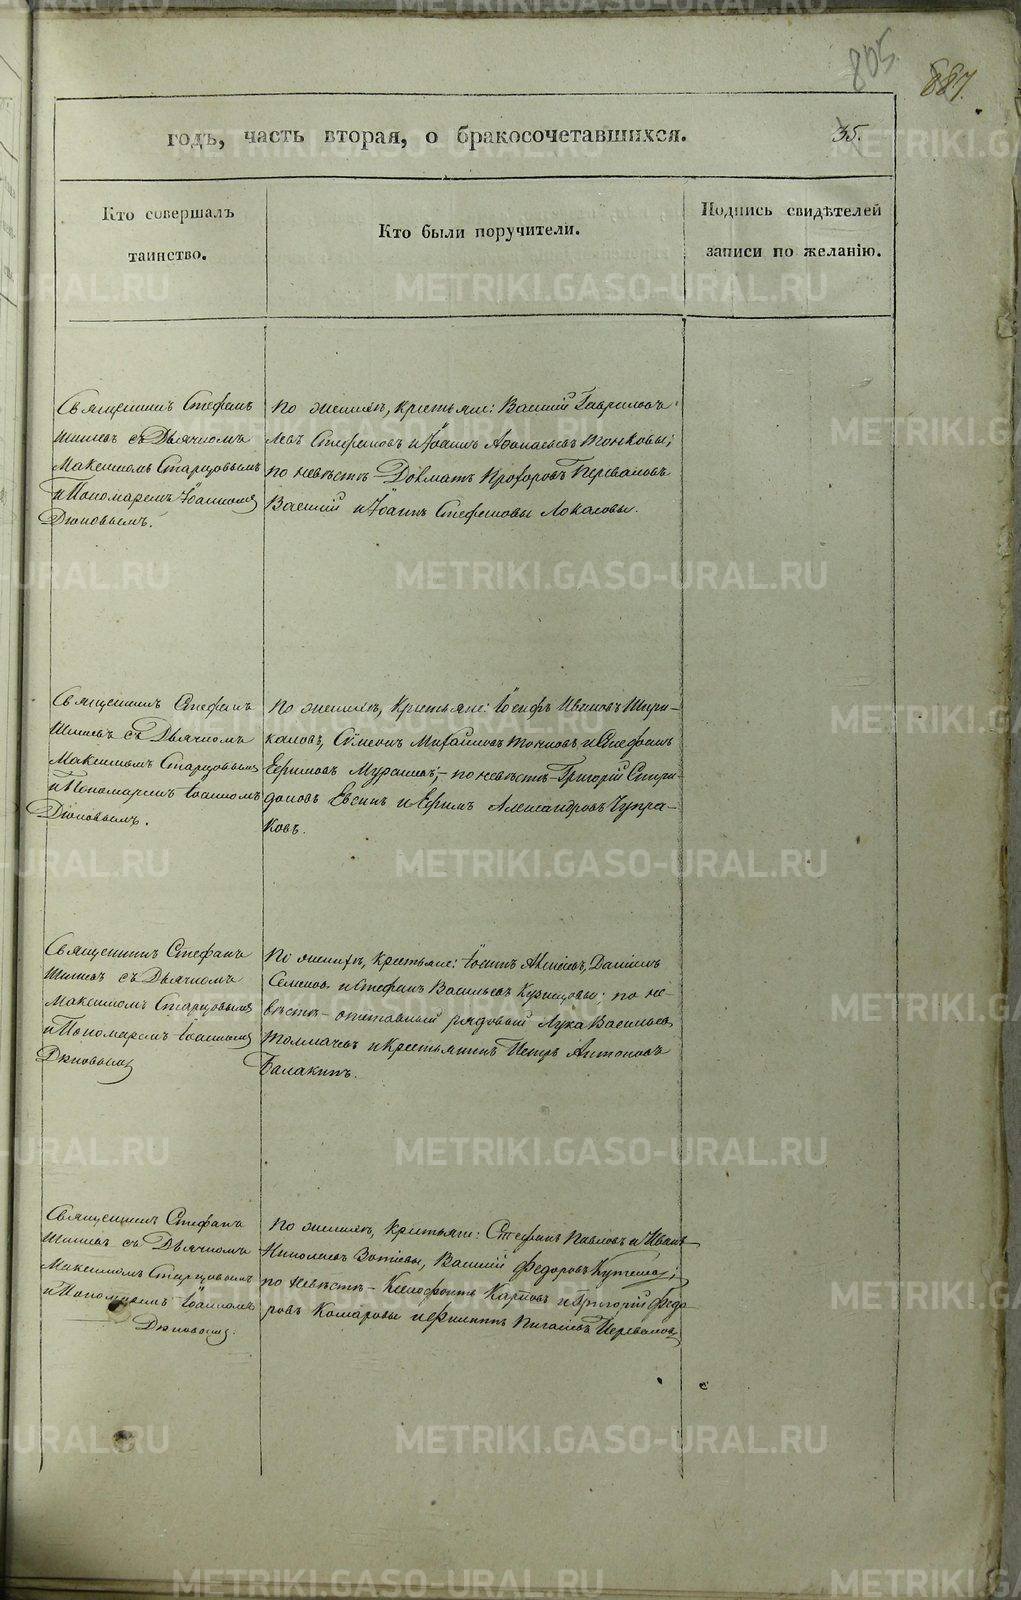 805
887.
годъ, часть вторая, о бракосочетавшихся.
35.
Кто совершалъ
таинство.
Кто были поручители.
Подпись свидѣтелей
записи по желанію.
Священникъ Стефанъ
Шишевъ съ Дьячкомъ
Максимомъ Старцовымъ
и Пономаремъ Іоанномъ
Дюковымъ.
По женихѣ, крестьяне: Василій Гавриловъ
Левъ Стефановъ и Іоаннъ Афонасьевъ Тонковы;
по невѣстѣ Долматъ Прохоровъ Перваловъ
Василій и Іоаннъ Стефановы Локаловы.
Священникъ Стефанъ
Шишевъ съ Дьячкомъ
Максимомъ Старцовымъ
и Пономаремъ Іоанномъ
Дюковымъ.
По женихѣ, Крестьяне: Іосифъ Ивановъ Шири-
каловъ, Сѵмеонъ Михайловъ и Стефанъ
Ефимовъ Мурашевъ; по невѣстѣ Григорій Спири-
доновъ Евсинъ и Ефимъ Александровъ Чупра-
ковъ.
Священникъ Стефанъ
Шишевъ съ Дьячкомъ
Максимомъ Старцовымъ
и Пономаремъ Іоанномъ
Дюковымъ
По женихѣ, крестьяне: Іоаннъ Алексіевъ, Даніилъ
Семеновъ и Стефанъ Васильевъ Кузнецовы; по не-
вѣстѣ - отставный рядовый Лука Васильевъ
Толмачевъ и Крестьянинъ Петръ Антоновъ
Балакинъ.
Священникъ Стефанъ
Шишевъ съ Дьячкомъ
Максимомъ Старцовымъ
и Пономаремъ Іоанномъ
Дюковымъ.
По женихѣ, Крестьяне: Стефанъ Павловъ и Иванъ
Николаевъ Зотѣевы, Василій Федоровъ;
по невѣстѣ - Ксенофонтъ Карповъ и Григорій Федо-
ровъ Комаровы и Филиппъ Перваловъ
METRIKI.GASO-URAL.RU